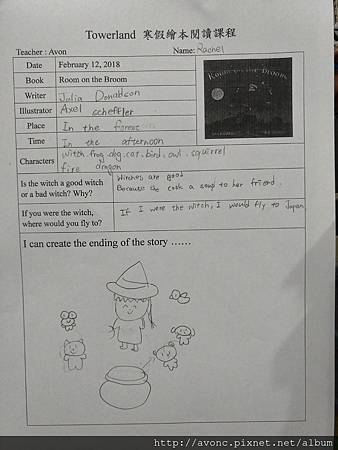 Towerland 寒假繪本閱讀課程
Teacher : Avon Name: Rachel
Date February 12, 2018
Book Room on the Broom
ROOM ON THE BROOM
Writer Julia Donaldson
Illustrator Axel scheffler
Place In the forest
Time In the afternoon
Characters witch.frog.dog.cat.bird.owl.squirrel
fire dragon
Is the witch a good witch or a bad witch? Why? Witches are good
Because she cook a soup to her friend.
If you were the witch, where would you fly to? If I were the witch, I would fly to Japan
I can create the ending of the story ……
http://avonc.pixnet.net/album